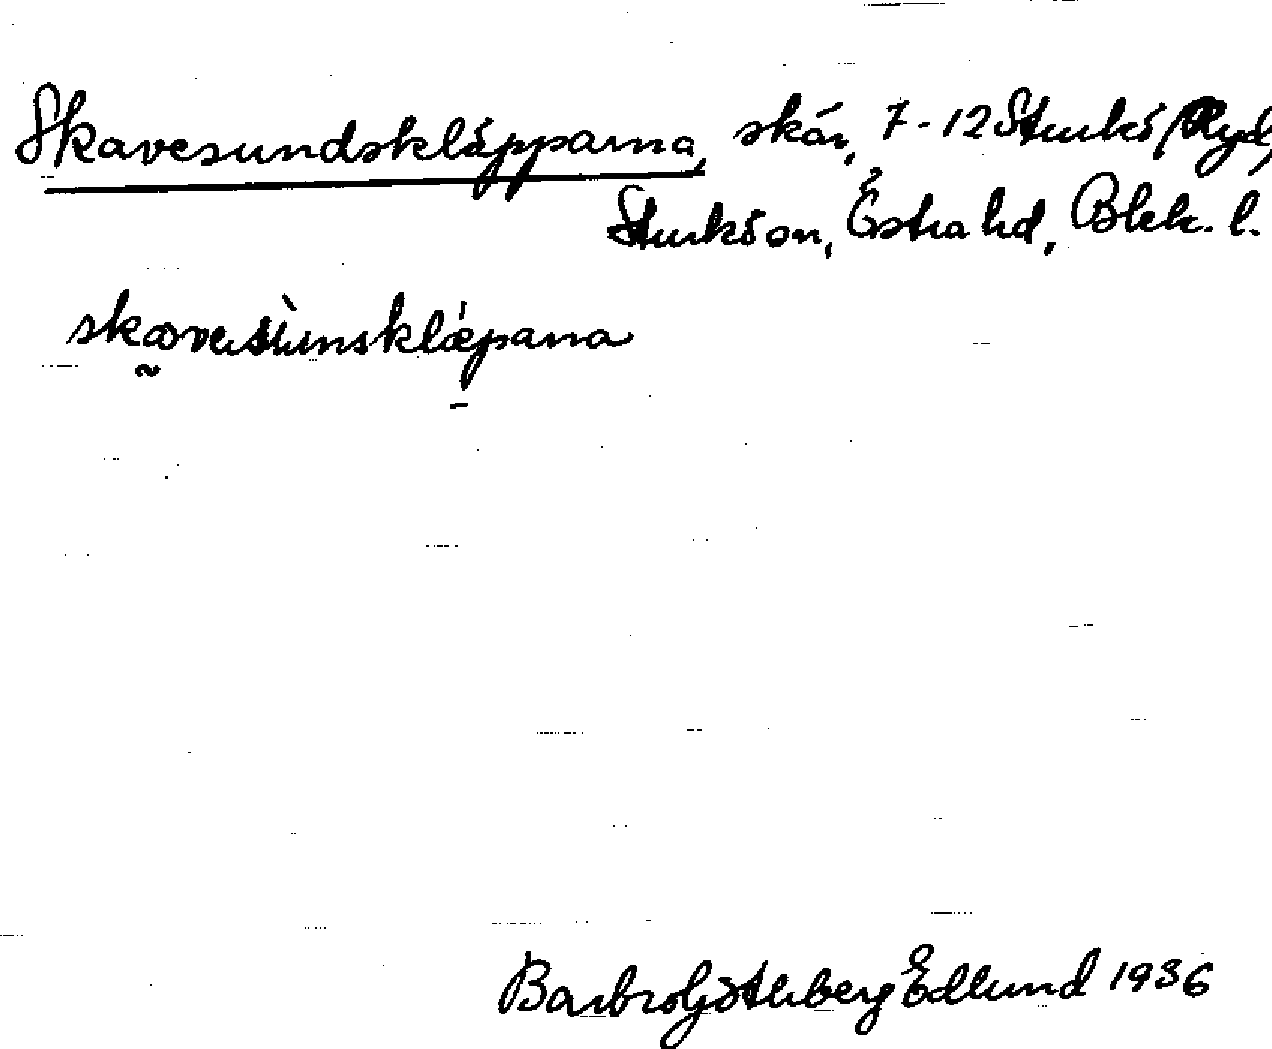 Skavesundskläpparna, skär, 7-12 Sturkö/Ryd,
Sturkö sn, Östra hd, Blek. l.
skavesùnsklǽpana
Barbro Götheberg Edlund 1936